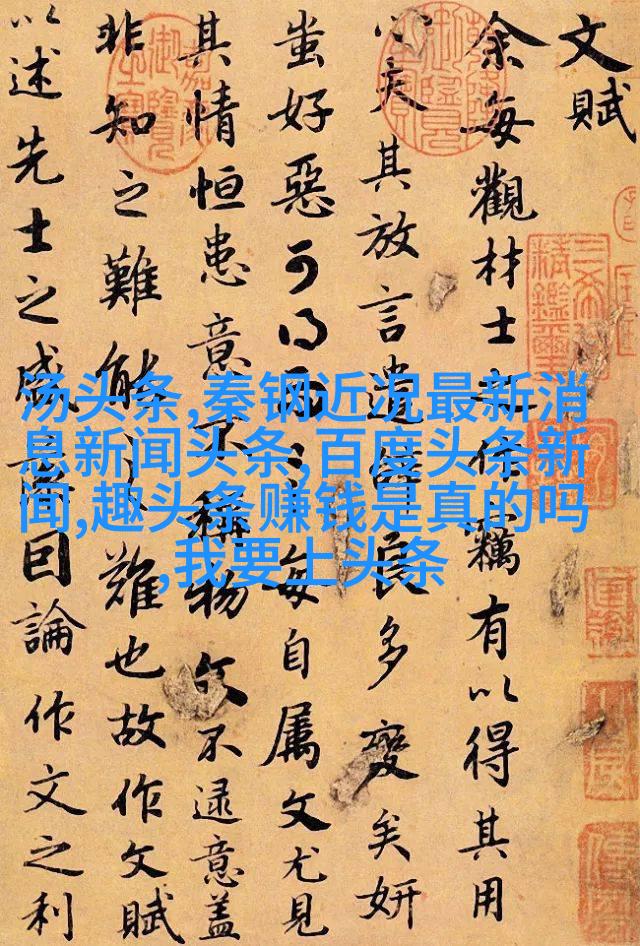 文賦
余每觀材士之作竊有以得其用
心夫其放言遣辭良多變矣妍
蚩好惡可得而言每自属文尤見
其情恒患意不稱物文不逮意蓋
非知之難能之難也故作文賦
以述先士之盛藻因論作文之利
汤头条,秦钢近况最新消
息新闻头条,百度头条新
闻,趣头条赚钱是真的吗
,我要上头条